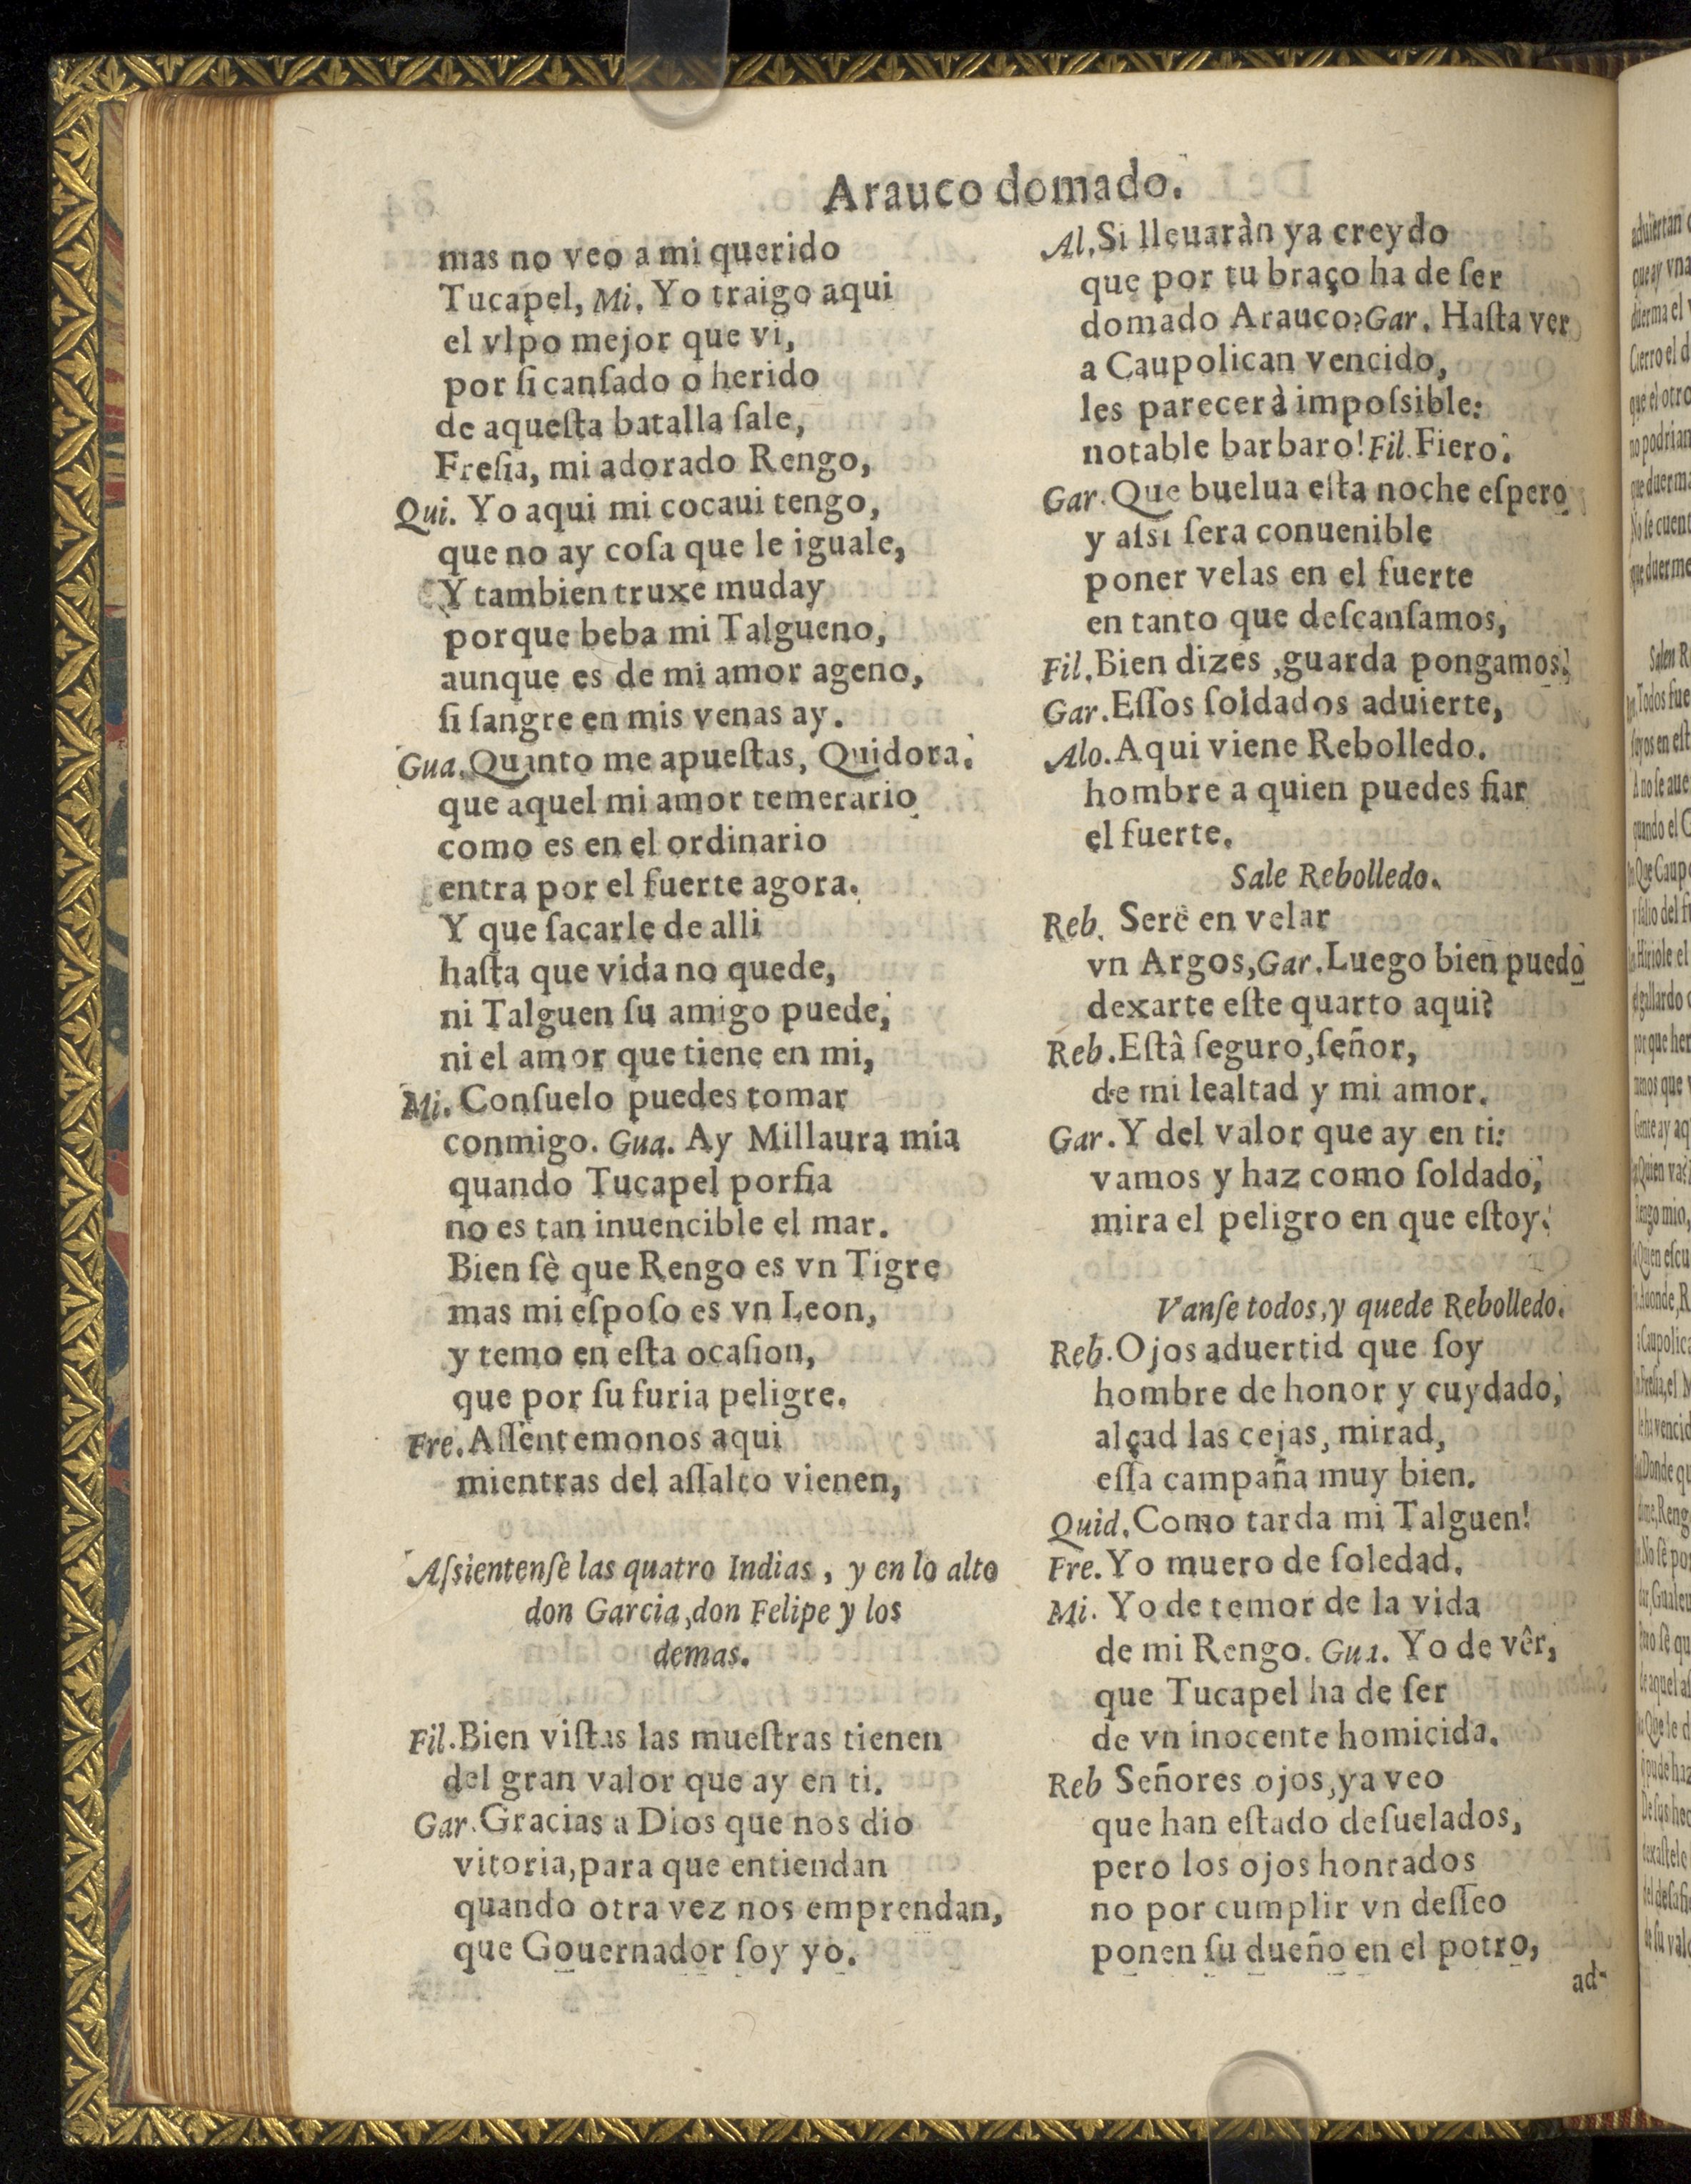 Arauco domado.
mas no veo a mi querido
Tucapel, Mi. Yo traigo aqui
el vlpo mejor que vi,
por ſi canſado o herido
de aqueſta batalla ſale,
Freſia, mi adorado Rengo,
Qui. Yo aqui mi cocaui tengo,
que no ay coſa que le iguale,
Y tambien truxe muday
porque beba mi Talgueno,
aunque es de mi amor ageno,
ſi ſangre en mis venas ay.
Gua. Quanto me apueſtas, Quidora.
que aquel mi amor temerario
como es en el ordinario
entra por el fuerte agora.
Y que ſacarle de alli
haſta que vida no quede,
ni Talguen ſu amigo puede,
ni el amor que tiene en mi,
Mi. Conſuelo puedes tomar
conmigo. Gua. Ay Millaura mia
quando Tucapel porfia
no es tan inuencible el mar.
Bien ſè que Rengo es vn Tigre
mas mi eſpoſo es vn Leon,
y temo en eſta ocaſion,
que por ſu furia peligre.
Fre. Aſſentemonos aqui
mientras del aſſalto vienen,
Aſsientenſe las quatro Indias, y en lo alto
don Garcia, don Felipe y los
demas.
Fil. Bien viſtas las mueſtras tienen
del gran valor que ay en ti.
Gar. Gracias a Dios que nos dio
vitoria, para que entiendan
quando otra vez nos emprendan,
que Gouernador ſoy yo.
Al. Si lleuaràn ya creydo
que por tu braço ha de ſer
domado Arauco? Gar. Haſta ver
a Caupolican vencido,
les parecerà impoſsible:
notable barbaro! Fil. Fiero.
Gar. Que buelua eſta noche eſpero
y aſsi ſera conuenible
poner velas en el fuerte
en tanto que deſcanſamos,
Fil. Bien dizes, guarda pongamos.
Gar. Eſſos ſoldados aduierte,
Alo. Aqui viene Rebolledo.
hombre a quien puedes fiar
el fuerte.
Sale Rebolledo.
Reb. Serè en velar
vn Argos, Gar. Luego bien puedo
dexarte eſte quarto aqui?
Reb. Eſtâ ſeguro, ſeñor,
de mi lealtad y mi amor.
Gar. Y del valor que ay en ti:
vamos y haz como ſoldado,
mira el peligro en que eſtoy.
Vanſe todos, y quede Rebolledo.
Reb. Ojos aduertid que ſoy
hombre de honor y cuydado,
alçad las cejas, mirad,
eſſa campaña muy bien.
Quid. Como tarda mi Talguen!
Fre. Yo muero de ſoledad.
Mi. Yo de temor de la vida
de mi Rengo. Gua. Yo de vêr,
que Tucapel ha de ſer
de vn inocente homicida.
Reb Señores ojos, ya veo
que han eſtado deſuelados,
pero los ojos honrados
no por cumplir vn deſſeo
ponen ſu dueño en el potro,
ad-